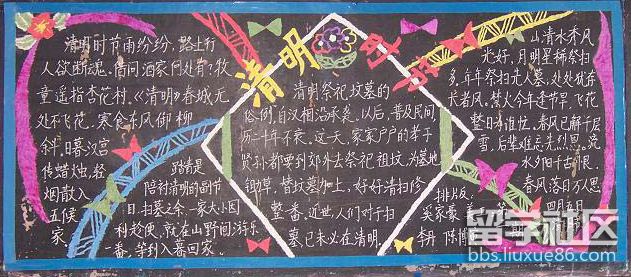 清明时节
清明时节雨纷纷，路上行
人欲断魂。借问酒家何处有？牧
童遥指杏花村。《清明》春城无
处不飞花，寒食东风御柳
斜。日暮汉宫
传蜡烛，轻
烟散入
五侯
家。
踏青是
陪衬清明的副节
目。扫墓之余，一家大小因
利趁便，就在山野间游乐
一番，等到入暮回家。
清明祭祀坟墓的
俗例，自汉相沿承袭，以后，普及民间
历二千年不衰。这一天，家家户户的孝子
贤孙都要到郊外去祭祀祖坟，为墓地
锄草，替坟墓加上，好好清扫修
整一番。近世，人们对于扫
墓，已未必在清明。
山清水秀风
光好，月明星稀祭扫
多，年年祭扫先人墓，处处犹存
长者风。禁火今年逢节早，飞花
整日有谁忙。春风已解千层
雪，后辈难忘先烈恩。
春风落日万人
思
排版
留学社区
bbs.liuxue86.com